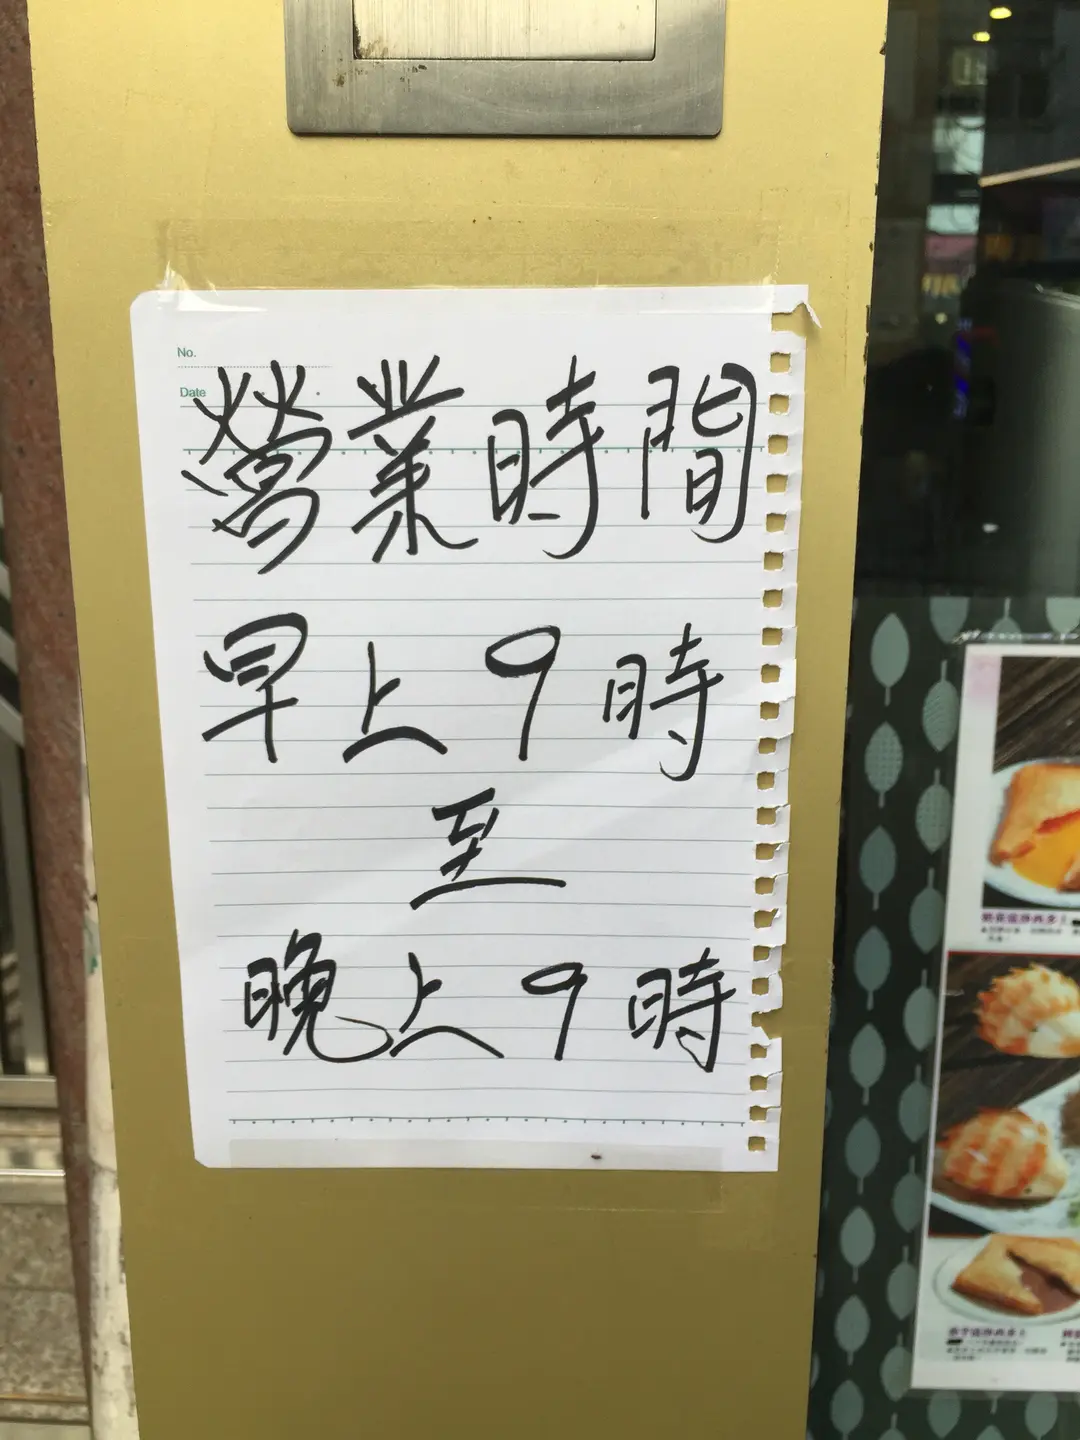 No.
Date
營業時間
早上9時
至
晚上9時